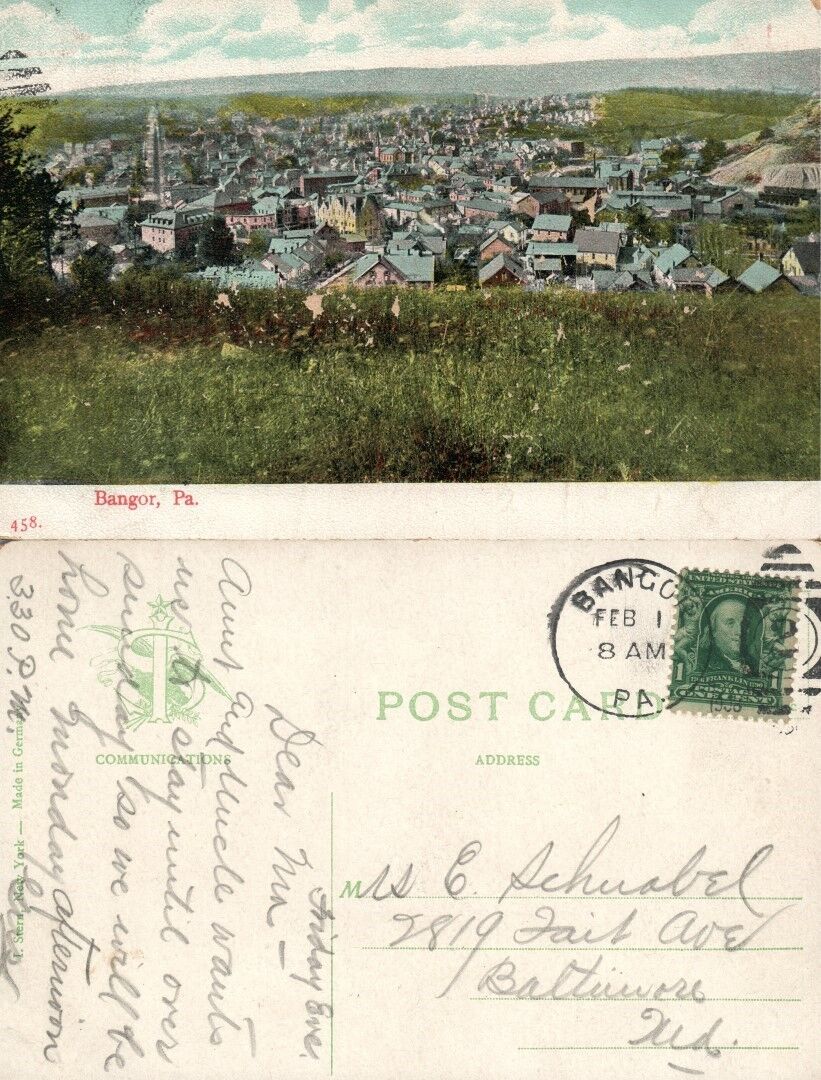 Bangor, Pa.
458.
BANGO
FEB 1
8 AM
PA.
UNITED STATES OF
AMERICA
FRANKLIN
1 1
POSTAGE
ONE CENT
POST CARD
COMMUNICATIONS
ADDRESS
I. Stern, New York — Made in Germ
Friday Eve.
Dear Ma —
Aunt and Uncle wants
us to stay until over
sunday so we will be
home Monday afternoon
3.30 P.M.
Mrs E. Schnabel
2819 Fait Ave
Baltimore
Md.